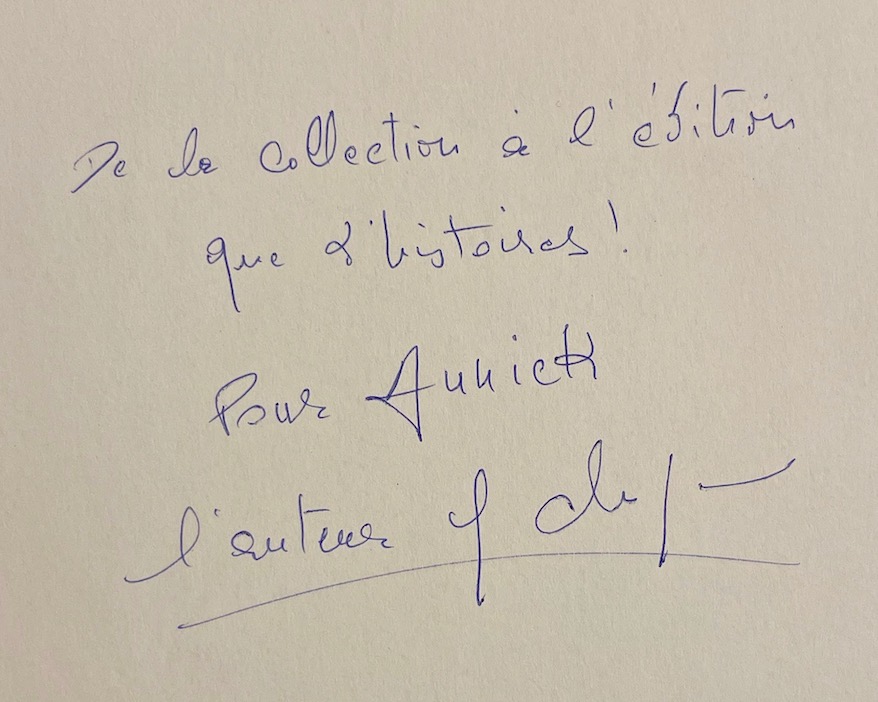 De la collection à l'édition
que d'histoires !
Pour Annick
l'auteur